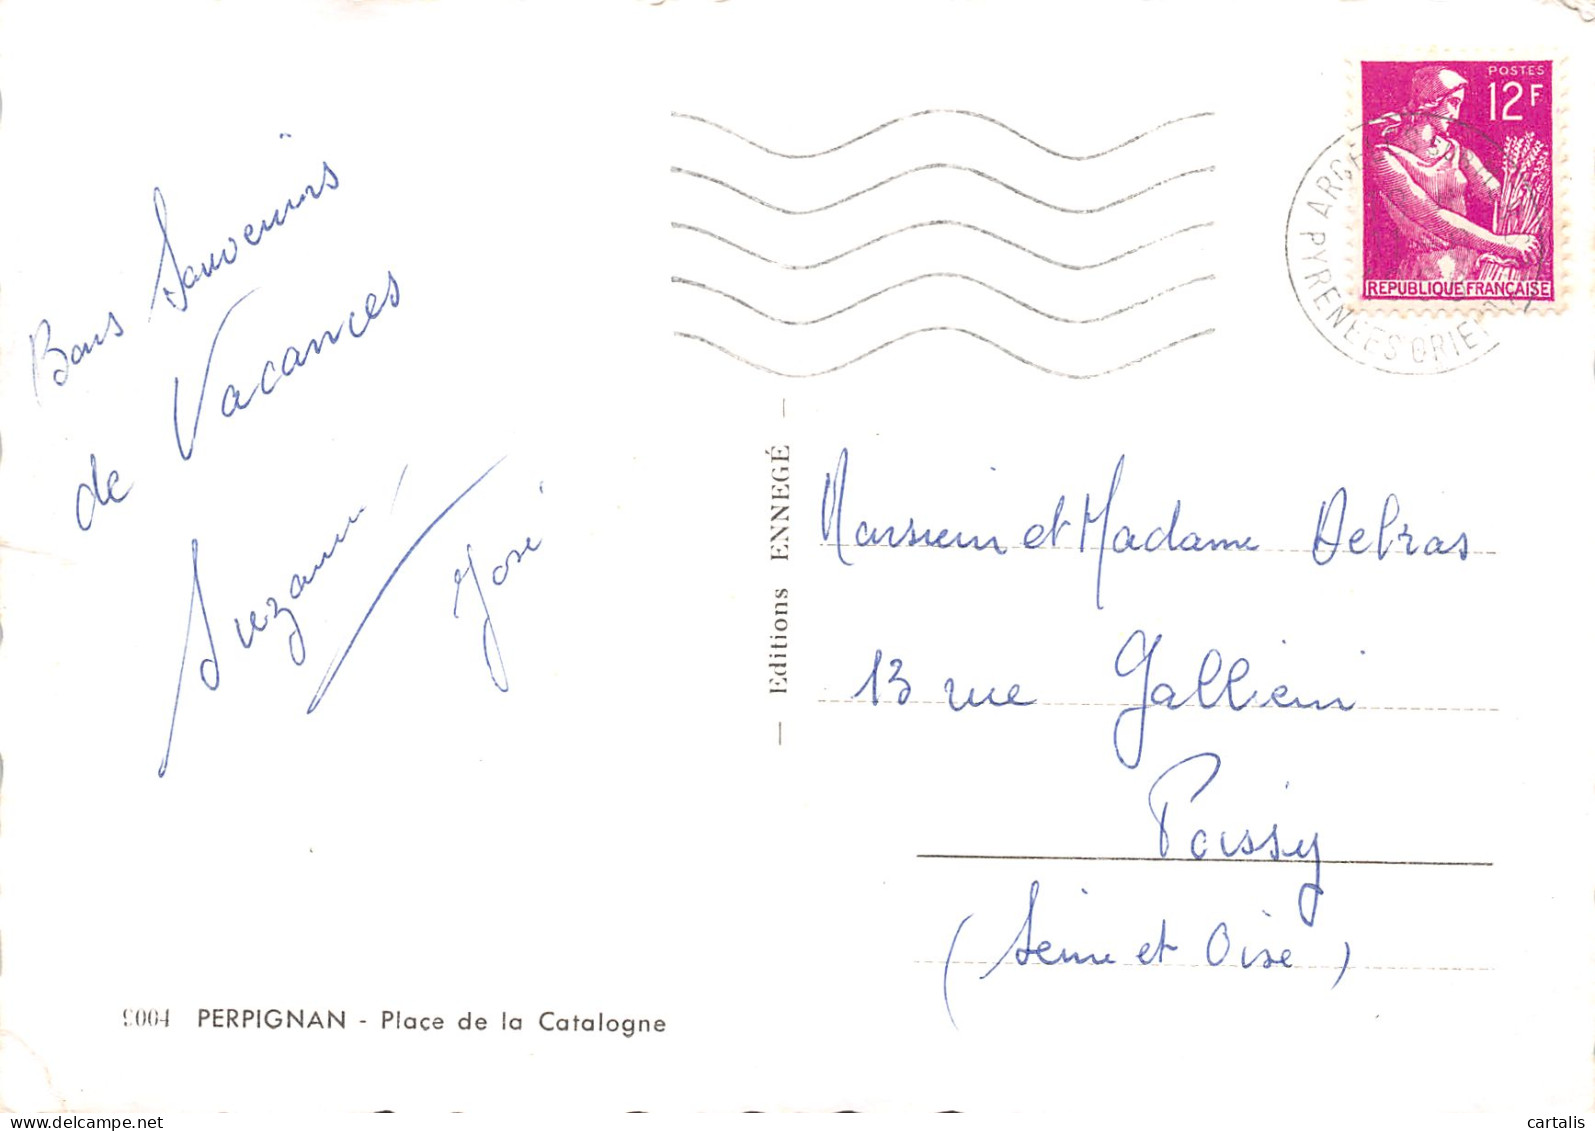 Bons Souvenirs
de Vacances
Suzanne
José
— Editions ENNEGÉ —
POSTES
12F
REPUBLIQUE FRANÇAISE
PYRENEES ORIEN
Monsieur et Madame Debras
13 rue Gallieni
Poissy
(Seine et Oise)
PERPIGNAN - Place de la Catalogne
cartalis